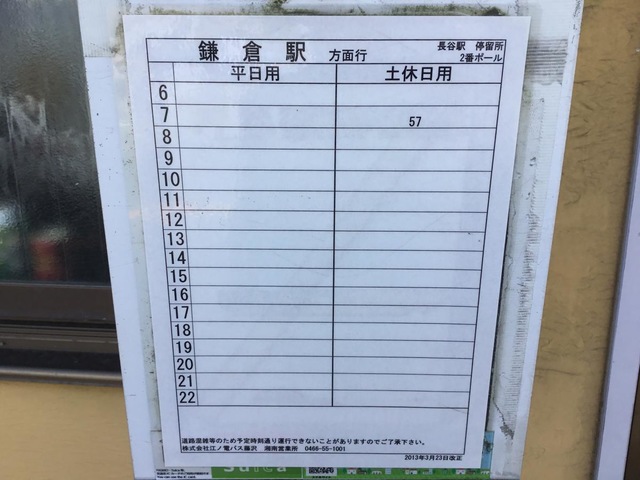 鎌倉駅 方面行
長谷駅 停留所
2番ポール
平日用 土休日用
6
7 57
8
9
10
11
12
13
14
15
16
17
18
19
20
21
22
道路混雑等のため予定時刻通り運行できないことがありますのでご了承下さい。
株式会社江ノ電バス藤沢 湘南営業所 0466-55-1001
2013年3月23日改正
Suica